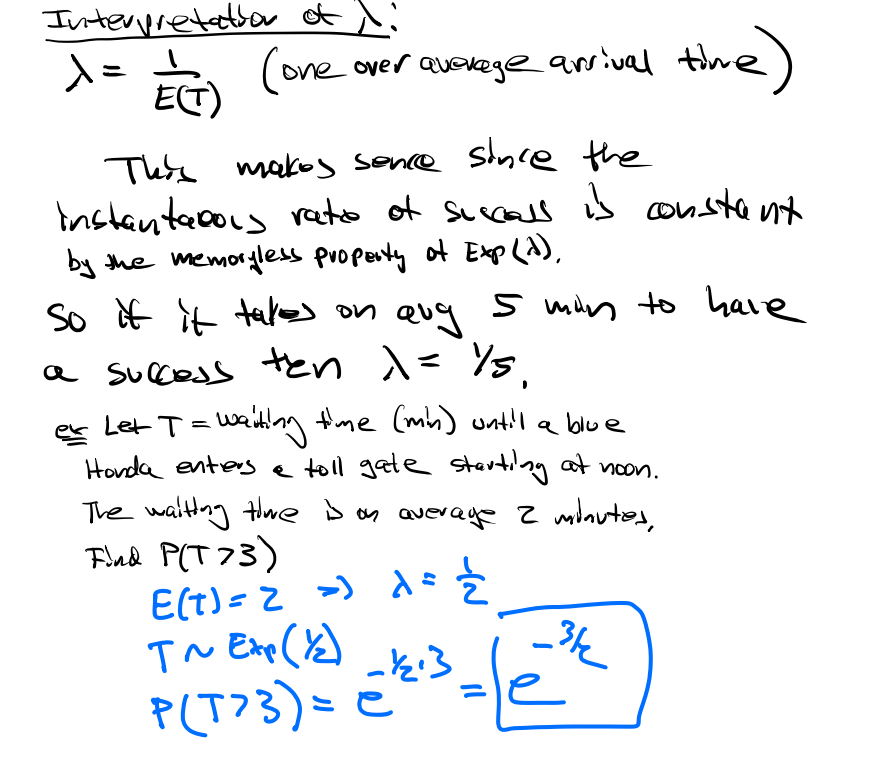 Interpretation of λ:
λ = 1/E(T) (one over average arrival time)
This makes sence since the
instantaeous rate of success is constant
by the memoryless property of Exp(λ).
So if it takes on avg 5 min to have
a success ten λ = 1/5.
ex Let T = waiting time (min) until a blue
Honda enters a toll gate starting at noon.
The waiting time is on average 2 minutes.
Find P(T>3)
E(T) = 2 ⇒ λ = 1/2
T ~ Exp(1/2)
P(T>3) = e^{-1/2·3} = e^{-3/2}